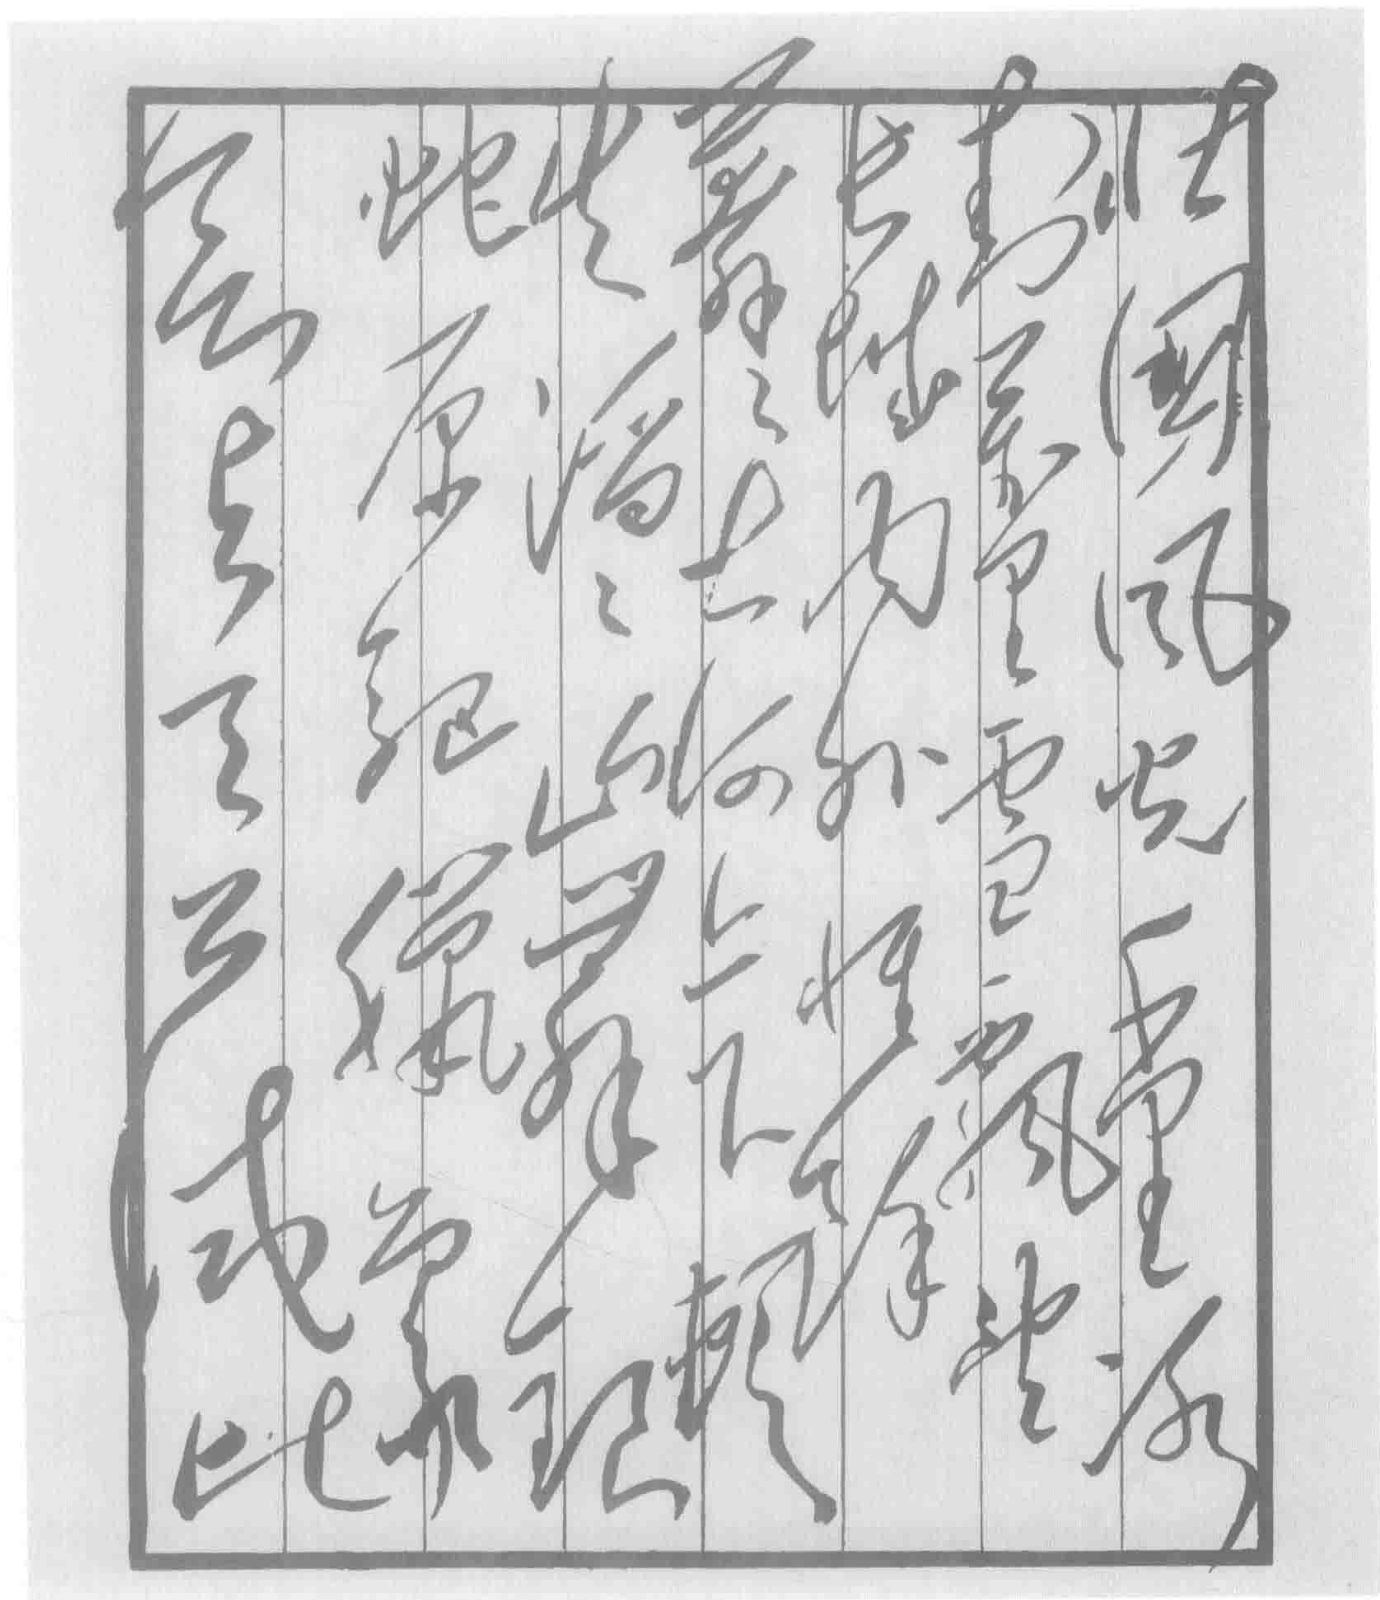 北國風光千里冰
封萬里雪飄望
長城内外惟餘
莽々大河上下頓
失滔々山舞銀
蛇原驅臘象
欲与天公試比